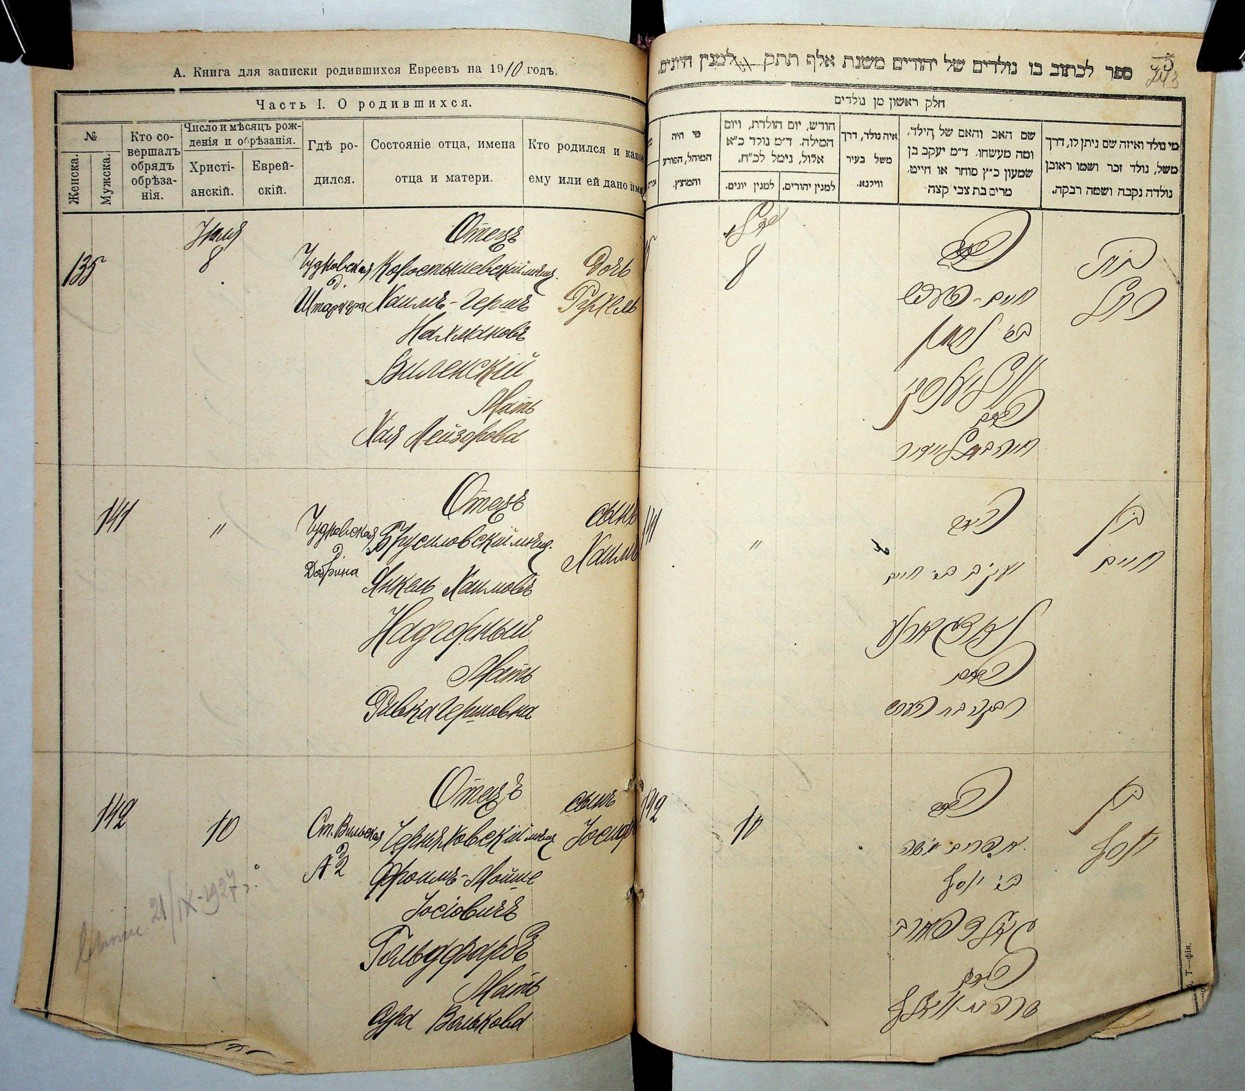 А. Книга для записки родившихся Евреевъ на 1910 годъ.
Часть I. О родившихся.
№
Женска.
Мужска.
Кто со-
вершалъ
обрядъ
обрѣза-
нія.
Число и мѣсяцъ рож-
денія и обрѣзанія.
Христі-
анскій.
Еврей-
скій.
Гдѣ ро-
дился.
Состояніе отца, имена
отца и матери.
Кто родился и какое
ему или ей дано имя
135
Юля
8
Чудновская
д.
Отецъ
Коростышевскій мѣщ.
Хаимъ-Гершъ
Нахмановъ
Виленскій
Мать
Хая Лейзерова
Дочь
Рухель
141
"
Чудновская
д.
Отецъ
Брусиловскій мѣщ.
Янкель Хаимовъ
Надгорный
Мать
Ривка Гершовна
сынъ
Хаимъ
142
10
Ст. Вильская
д
№ 2
Отецъ
Черняховскій мѣщ
Фроимъ-Мойше
Іосіовичъ
Гольдфарбъ
Мать
Сура Волькова
сынъ
Іосифъ
21/IX-1927 г.
ספר לכתוב בו נולדים של יהודים משנת אלף תתק למנין היונים.
חלק ראשון מן נולדים
מי נולד ואיזה שם ניתן לו, דרך
משל, נולד זכר ושמו ראובן
נולדה נקבה ושמה רבקה.
שם האב והאם של הילד,
ומה מעשהו. ד״מ יעקב בן
שמעון כ״ץ סוחר או חיים
מרים בת צבי קצה
איה נולד, דרך
משל בעיר
ווילנא.
חודש, יום הולדת, ויום
המילה. ד״מ נולד כ״א
אלול, נימל לכ״ח.
למנין יהודים.
למנין יונים.
מי היה
המוהל, הפורע
והמוצץ.
8
בת
רחל
האב
חיים-הערש
בר נחמן
ווילענסקי
האם
חי׳ בת לייזר
141
"
בן
חיים
האב
יעקב בר חיים
נאדגארנע
האם
רבקה בת הערש
142
10
בן
יוסף
האב
אפרים משה
בר יוסף
גאלדפארב
האם
שרה בת וואלף